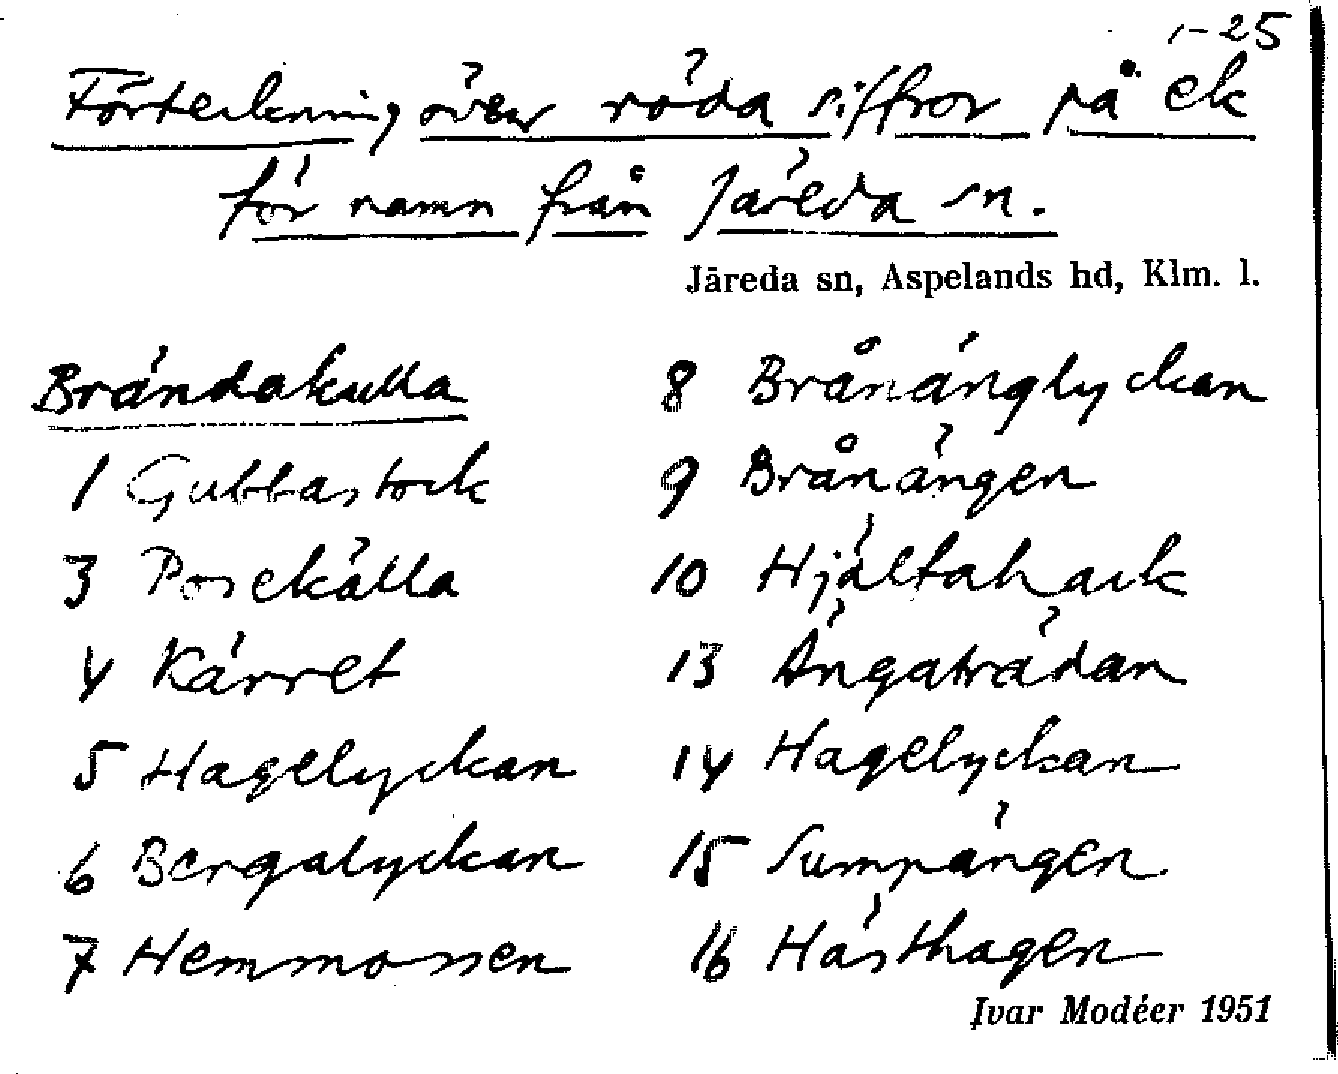 1-25
Förteckning över röda siffror på ek
för namn från Järeda sn.
Järeda sn, Aspelands hd, Klm. l.
Brändakulla
1 Gubbastock
3 Porsekälla
4 Kärret
5 Hagelyckan
6 Bergalyckan
7 Hemmossen
8 Brånänglyckan
9 Brånängen
10 Hjältahack
13 Ängaträdan
14 Hagelyckan
15 Sumpängen
16 Hästhagen
Ivar Modéer 1951